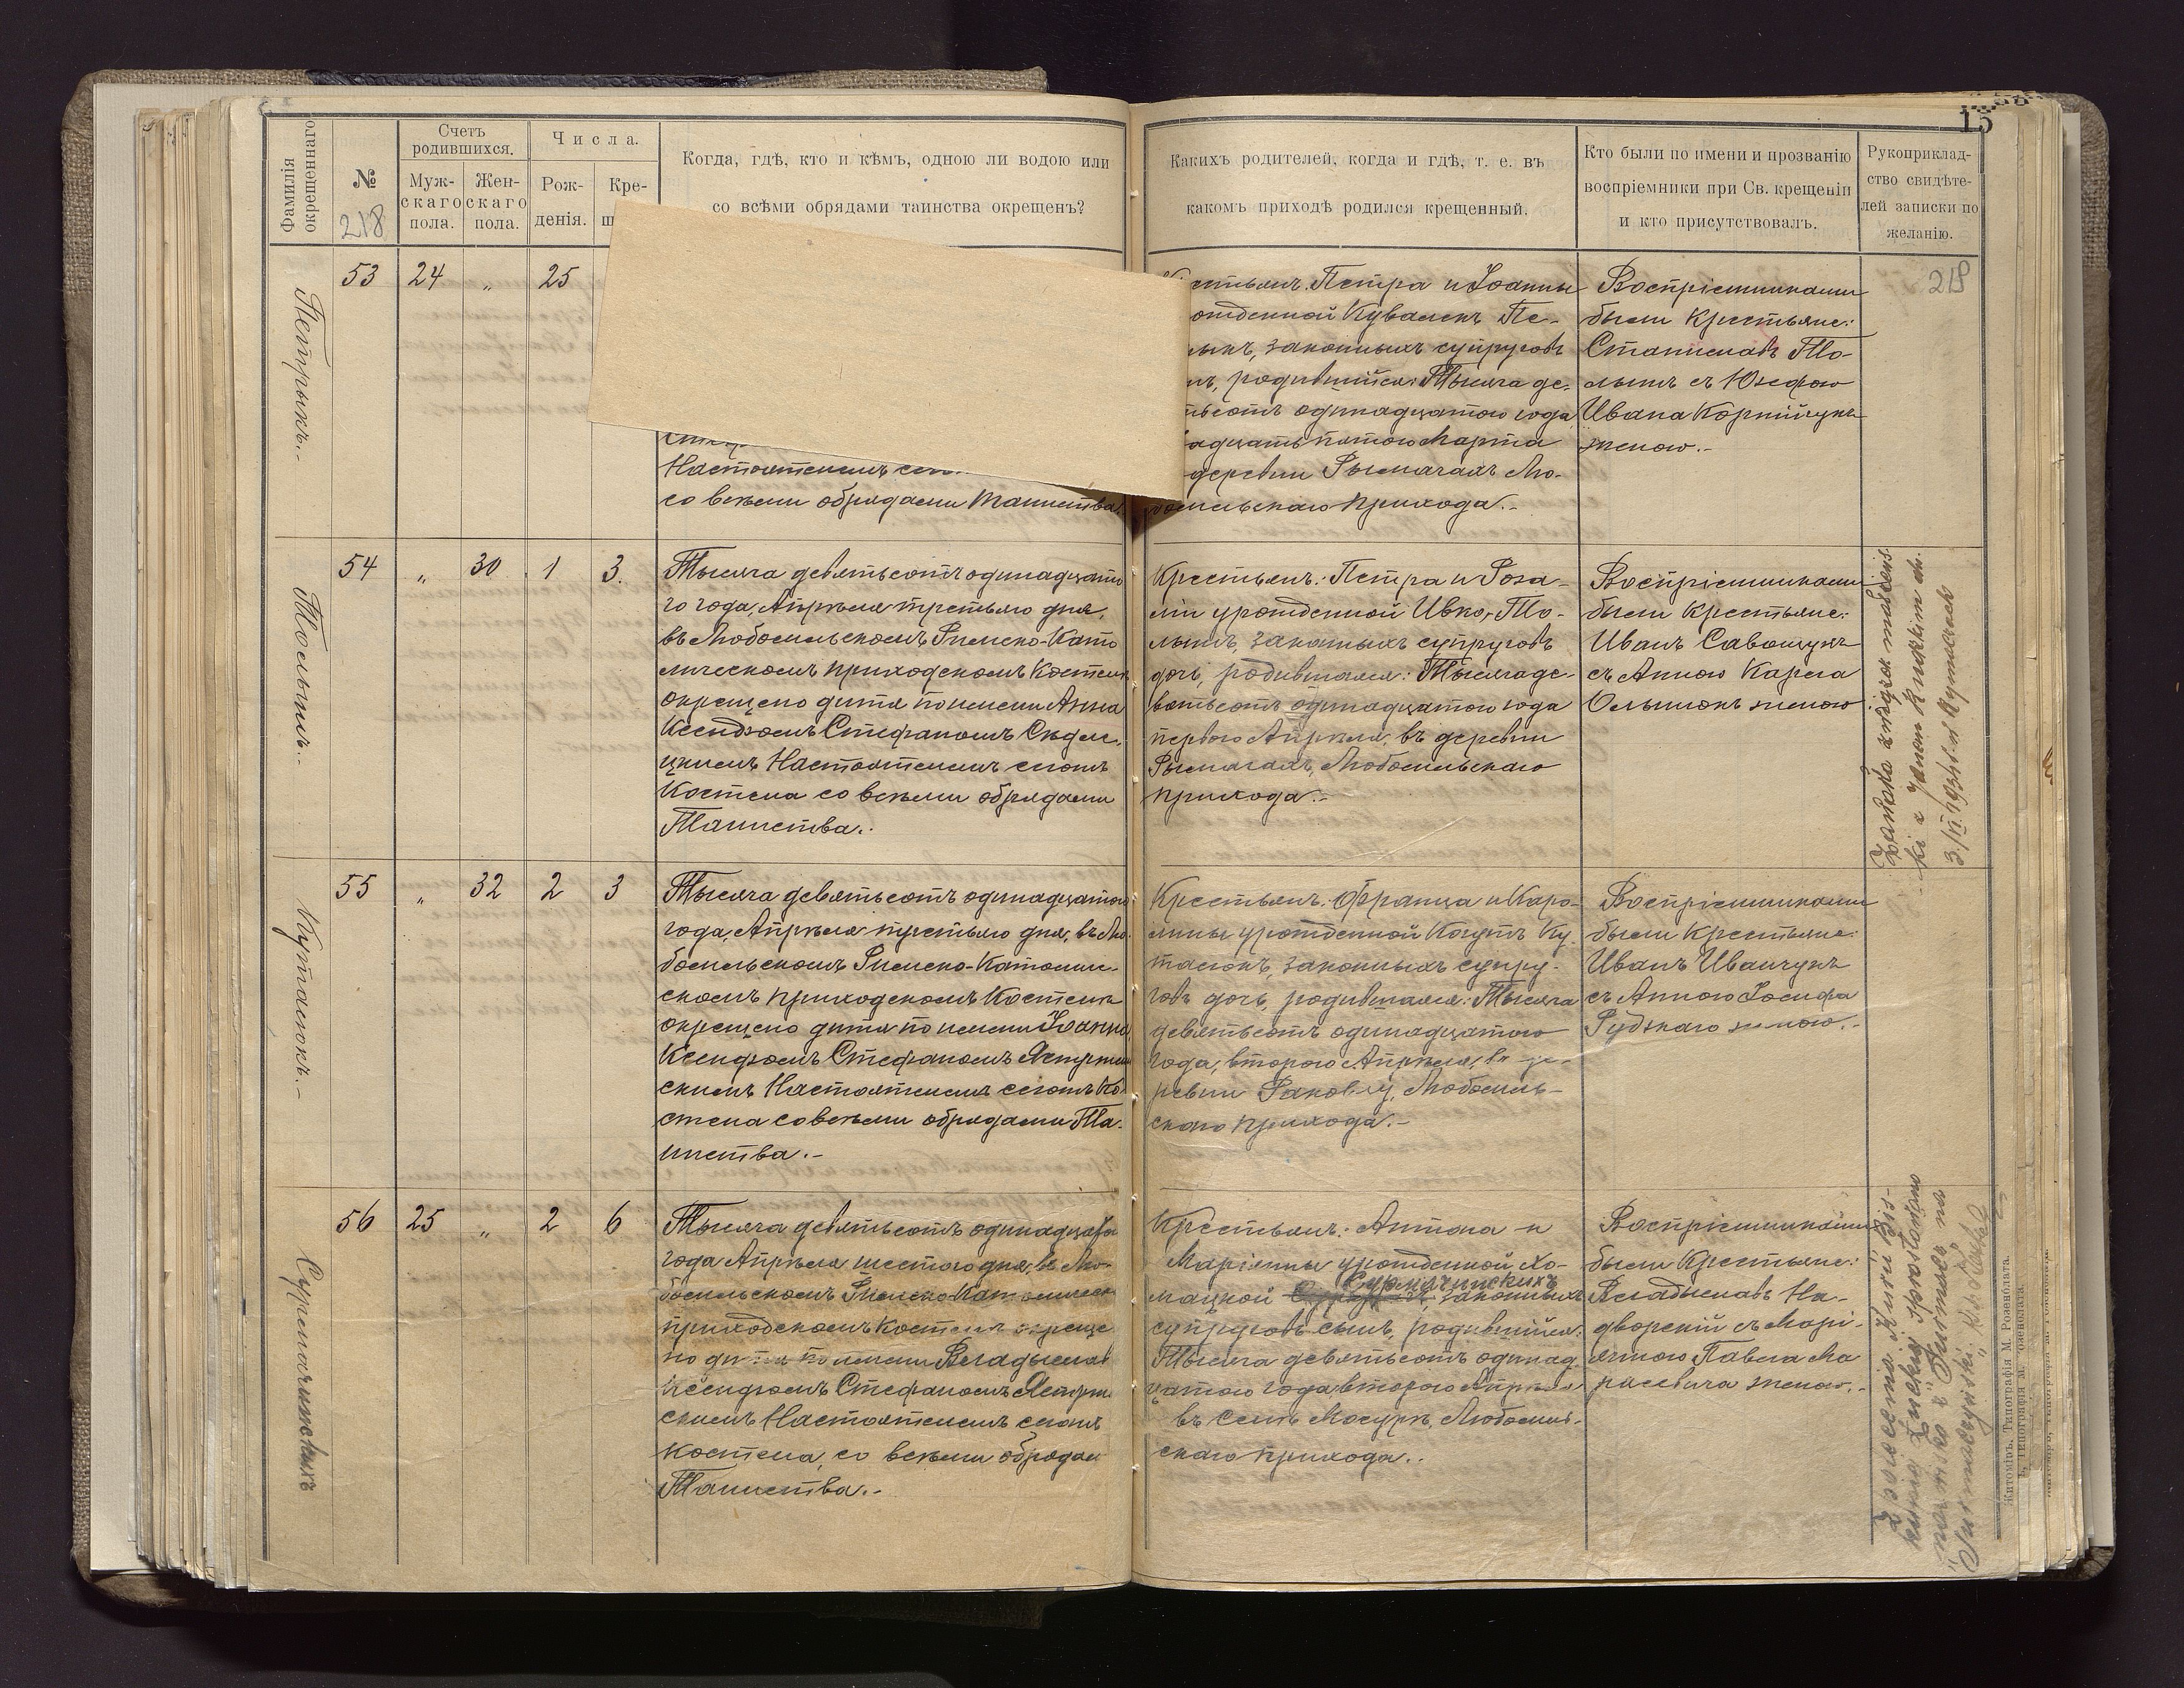 Фамилія окрещеннаго
№
218
Счетъ родившихся.
Мужскаго пола.
Женскаго пола.
Числа.
Рожденія.
Кре-
Когда, гдѣ, кто и кѣмъ, одною ли водою или
со всѣми обрядами таинства окрещенъ?
Какихъ родителей, когда и гдѣ, т. е. въ
какомъ приходѣ родился крещенный.
Кто были по имени и прозванію
воспріемники при Св. крещеніи
и кто присутствовалъ.
Рукоприклад-
ство свидѣте-
лей записки по
желанію.
15
218
Петрыкъ.-
53 24 „ 25
Настоятелемъ
со всѣми обрядами Таинства.
Петра и Іоанны
Кувалекъ Пе-
законныхъ супруговъ
родившійся: Тысяча де-
одинадцатого года
пятого Марта
деревни Рымачахъ Лю-
прихода.-
Воспріемниками
были Крестьяне:
Станиславъ То-
лышъ съ Юзефою
Ивана Корнійчукъ
женою.-
Толышъ.-
54 „ 30 1 3.
Тысяча девятьсотъ одинадцато
го года, Апрѣля третьяго дня,
въ Любомльскомъ Римско-Като
лическомъ приходскомъ Костелѣ
окрещено дитя по имени Анна
Ксендзомъ Стефаномъ
Настоятелемъ сего
Костела со всѣми обрядами
Таинства.-
Крестьянъ: Петра и Роза-
ліи урожденной Ивко, То-
лышъ, законныхъ супруговъ
дочь, родившаяся: Тысяча де-
вятьсотъ одинадцатого года
перваго Апрѣля, въ деревни
Рымачахъ, Любомльскаго
прихода.-
Воспріемниками
были Крестьяне:
Иванъ Савощукъ
съ Анною Карла
Ольшюкъ женою
Zawarła związek małżeńs-
ki z Janem Kuckim dn.
3/VI.1934 r. w Rymaczach
Куталюкъ.-
55 „ 32 2 3
Тысяча девятьсотъ одинадцатого
года, Апрѣля третьяго дня, въ Лю-
бомльскомъ Римско-Католиче-
скомъ приходскомъ Костелѣ
окрещено дитя по имени Іоанна
Ксендзомъ Стефаномъ Ястржем
скимъ Настоятелемъ сего Ко-
стела со всѣми обрядами Та-
инства.-
Крестьянъ: Франца и Каро-
лины урожденной Когутъ Ку-
талюкъ, законныхъ супру-
говъ дочь, родившаяся: Тысяча
девятьсотъ одинадцатого
года, второго Апрѣля, въ де-
ревни Раковец, Любомль-
скаго прихода.-
Воспріемниками
были Крестьяне:
Иванъ Иванчукъ
съ Анною Іосифа
Рудзкаго женою.-
Сурмачинскихъ
56 25 „ 2 6
Тысяча девятьсотъ одинадцатого
года Апрѣля шестого дня, въ Лю-
бомльскомъ Римско-Католическ
приходскомъ Костелѣ окреще
но дитя по имени Владыслав
Ксендзомъ Стефаномъ Ястржем
скимъ Настоятелемъ сего
Костела, со всѣми обрядам
Таинства.-
Крестьянъ: Антона и
Маріанны урожденной Хо-
Сурмачинскихъ
мацкой законныхъ
супруговъ сынъ, родившійся:
Тысяча девятьсотъ одинад
цатого года, второго Апрѣля
въ селѣ Мосуръ, Любомль-
скаго прихода..
Воспріемниками
были Крестьяне:
Владыславъ На-
дворскій съ Марі-
янною Павла Ма
расевича женою.-
Z polecenia Kurii Bis-
kupiej Łuckiej sprostowano
nazwisko z na
"Surmaczyński"
Житоміръ. Типографія М. Розенблата.